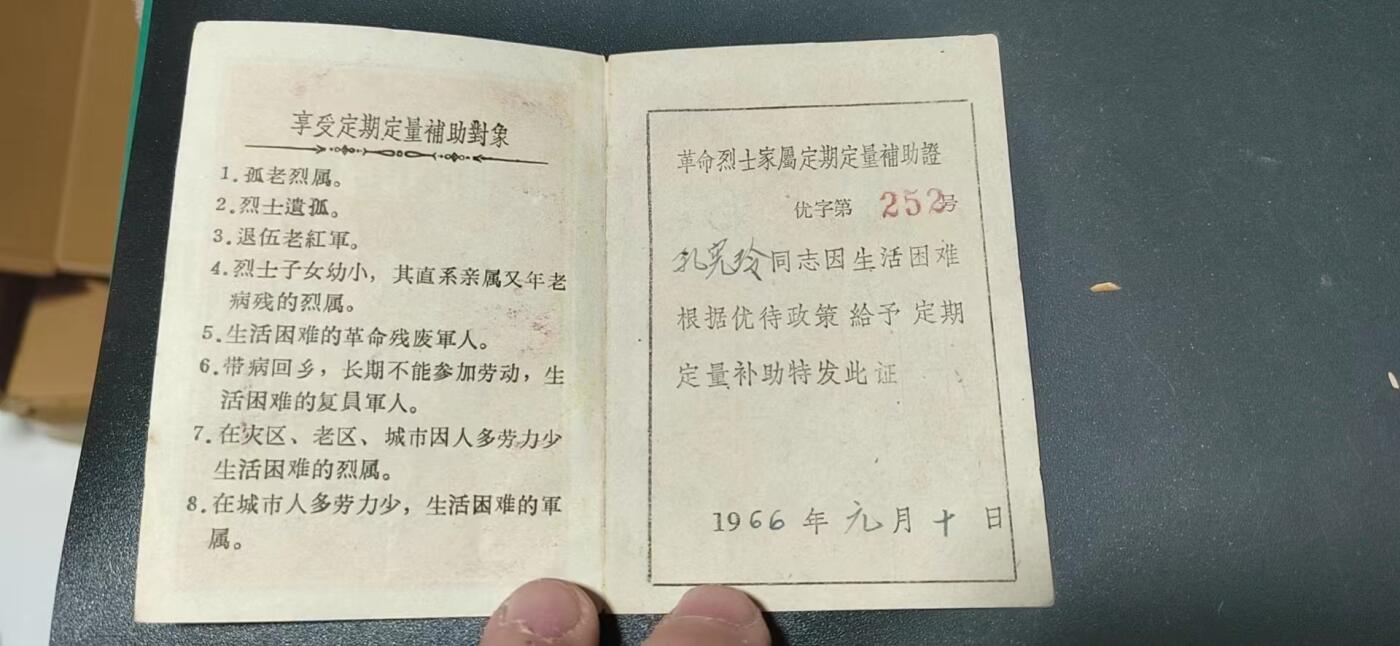 享受定期定量補助對象
1.孤老烈属。
2.烈士遺孤。
3.退伍老紅軍。
4.烈士子女幼小，其直系亲属又年老
病残的烈属。
5.生活困难的革命残废軍人。
6.带病回乡，长期不能参加劳动，生
活困难的复員軍人。
7.在灾区、老区、城市因人多劳力少
生活困难的烈属。
8.在城市人多劳力少，生活困难的軍
属。
革命烈士家屬定期定量補助證
优字第 252号
孔宪玲同志因生活困难
根据优待政策給予定期
定量补助特发此证
1966年元月十日